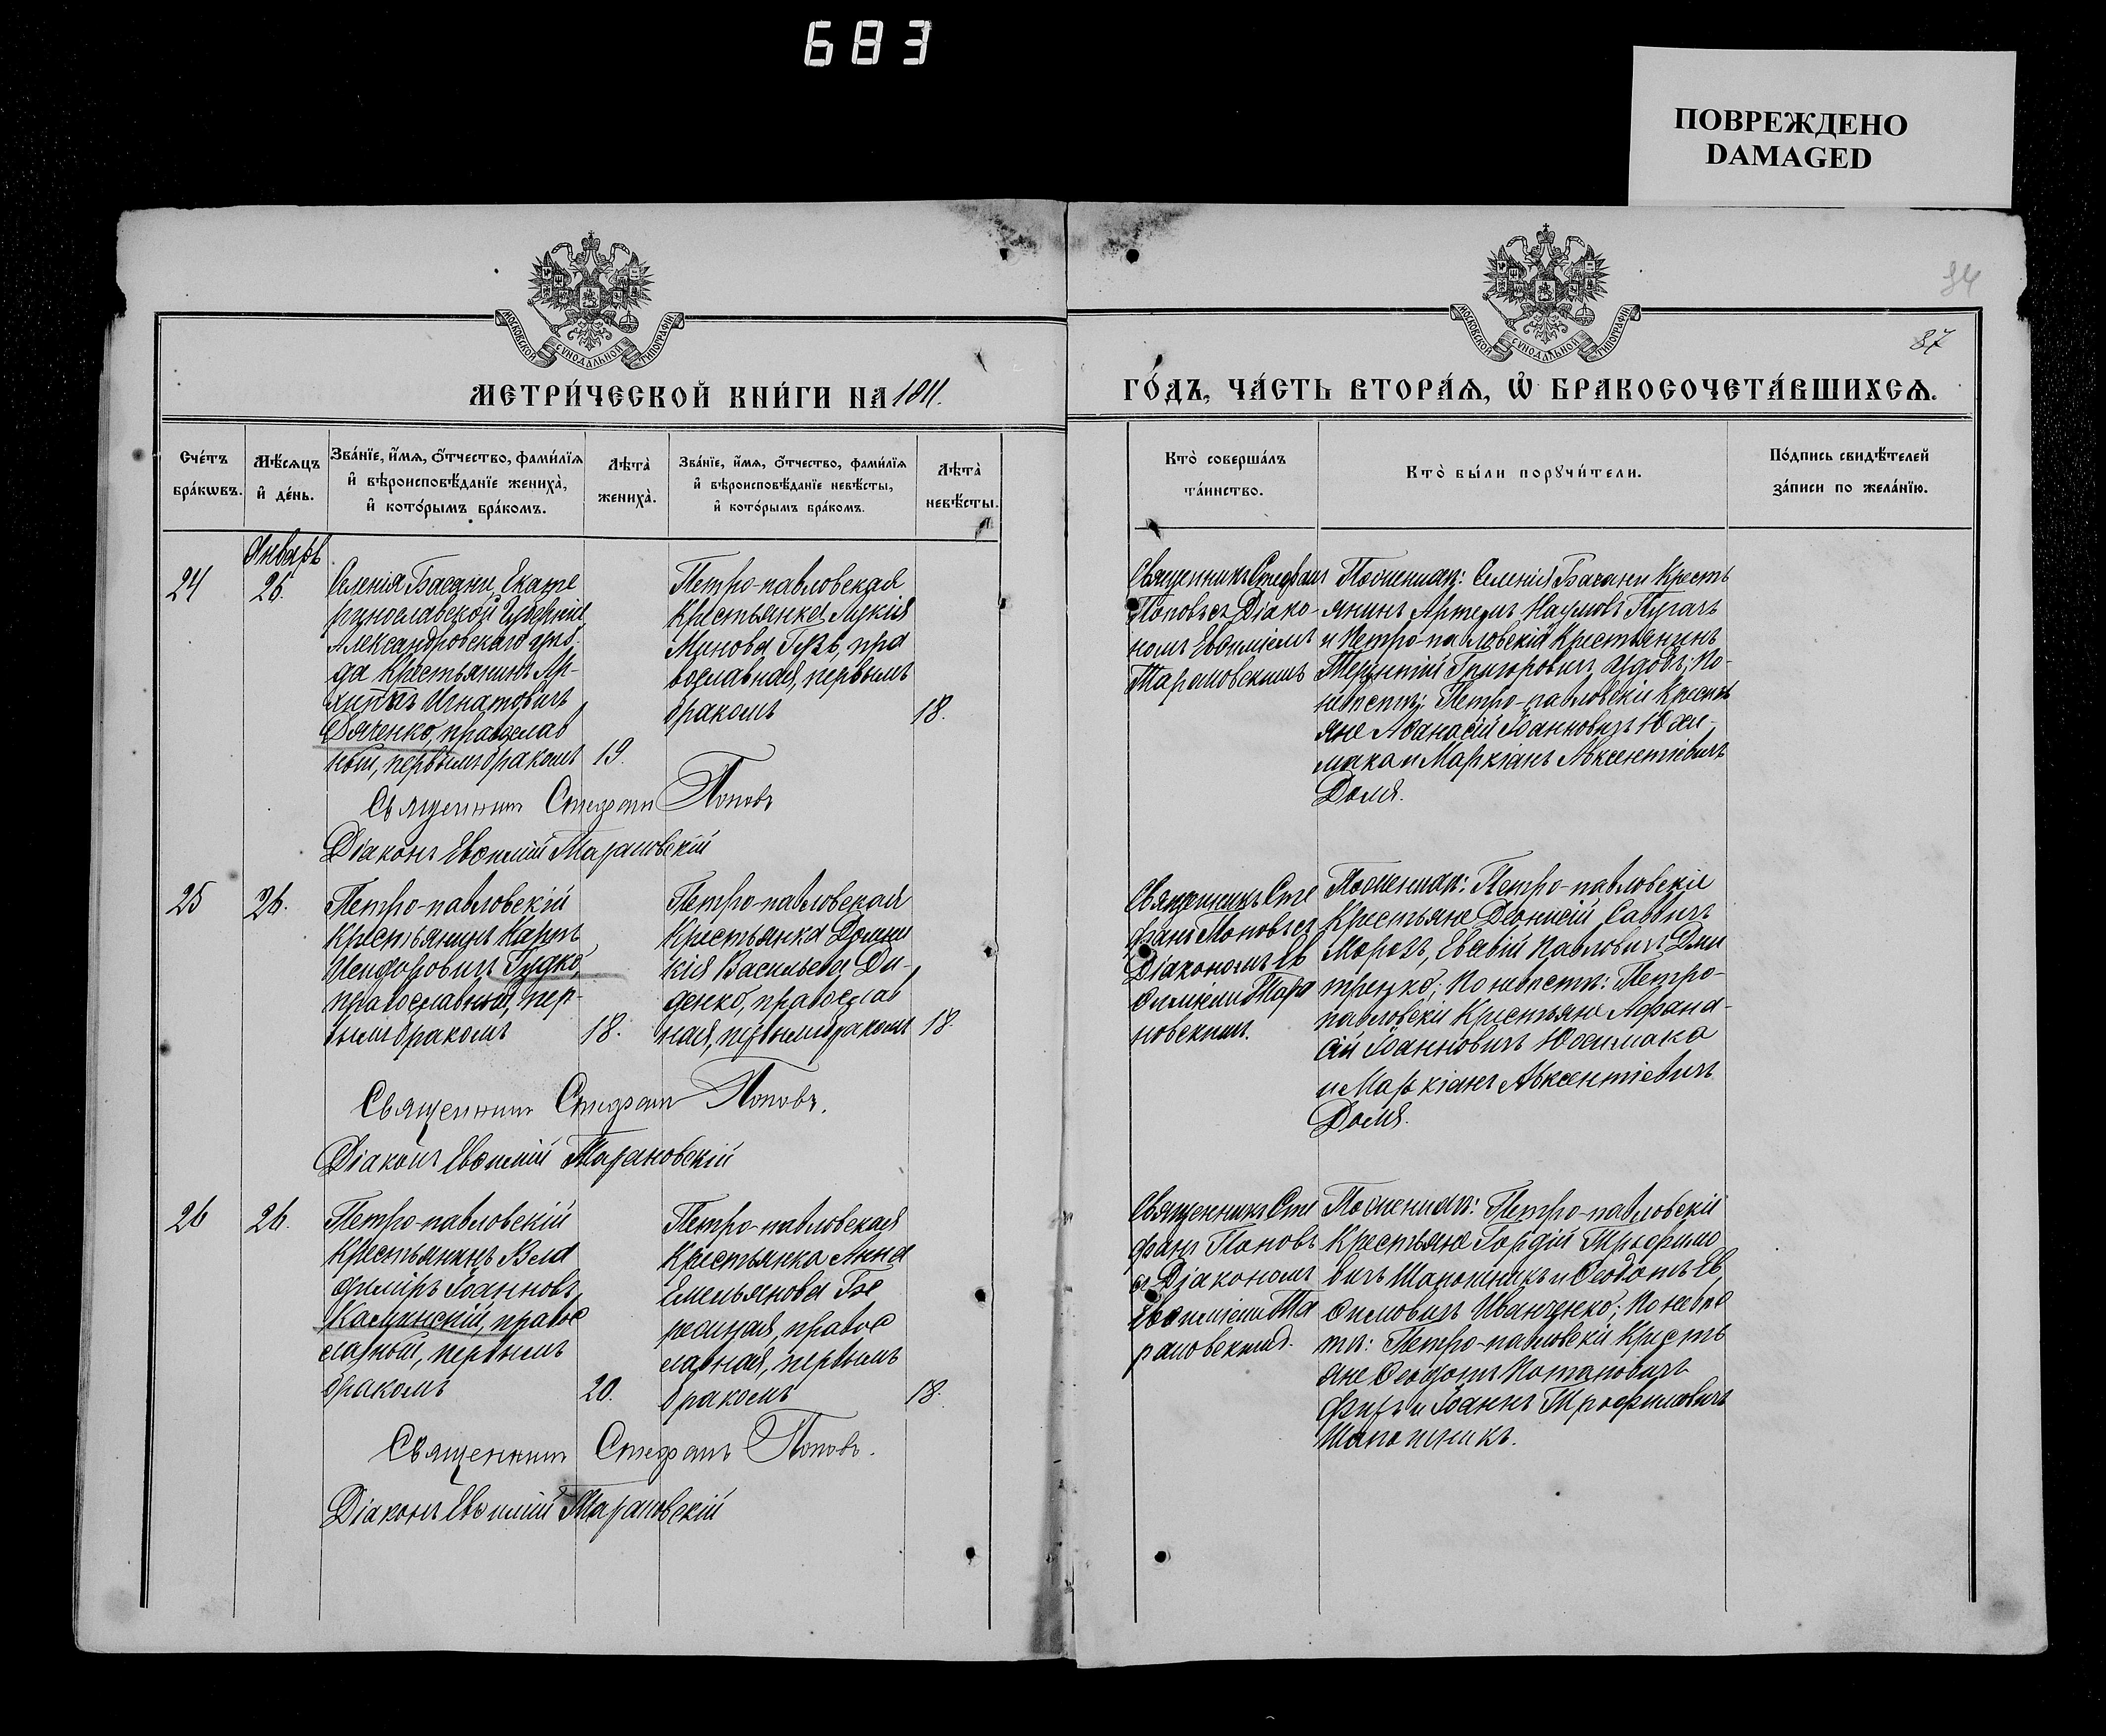 683
ПОВРЕЖДЕНО
DAMAGED
МОСКОВСКОЙ СѴНОДАЛЬНОЙ ТИПОГРАФІИ
МОСКОВСКОЙ СѴНОДАЛЬНОЙ ТИПОГРАФІИ
94
87
МЕТРИ́ЧЕСКОЙ КНИ́ГИ НА 1911.
ГО́ДЪ, ЧА́СТЬ ВТОРА́Ѧ, Ѽ БРАКОСОЧЕТА́ВШИХСѦ.
Сче́тъ бра́кѡвъ.
Мѣ́сяцъ и҆ де́нь.
Зва́нїе, и҆́мя, ѻ҆́тчество, фами́лїя
и҆ вѣроисповѣ́данїе жениха̀,
и҆ кото́рымъ бра́комъ.
Лѣта̀ жениха̀.
Зва́нїе, и҆́мя, ѻ҆́тчество, фами́лїя
и҆ вѣроисповѣ́данїе невѣ́сты,
и҆ кото́рымъ бра́комъ.
Лѣта̀ невѣ́сты.
Кто̀ соверша́лъ
та́инство.
Кто̀ бы́ли порꙋчи́тели.
По́дпись свидѣ́телей
за́писи по жела́нїю.
Январь
24
26.
Селенія Басани, Екате
ринославской Губерніи
Александровскаго уѣз
да Крестьянинъ Ар-
хиппъ Игнатовичъ
Дяченко, православ
ный, первымъ бракомъ
19.
Петро-павловская
Крестьянка Лукія
Гузь, пра
вославная, первымъ
бракомъ
18.
Священникъ Стефанъ
Поповъ съ Діако-
номъ Евѳиміемъ
Тарановскимъ
По женихѣ: Селенія Басани Кресть
янинъ Артемъ Наумовъ Пугачъ
и Петро-павловскій Крестьянинъ
Терентій Григоровичъ По-
невѣстѣ: Петро-павловскіе Кресть
яне Аѳанасій Іоанновичъ Юхи-
мака и Маркіанъ Авксентіевичъ
Доля.
Священникъ Стефанъ Поповъ
Діаконъ Евѳимій Тарановскій
25
26.
Петро-павловскій
Крестьянинъ Карпъ
Исидоровичъ Гудко,
православный, пер-
вымъ бракомъ
18.
Петро-павловская
Крестьянка Домни
кія Васильева Ди-
денко, православ
ная, первымъ бракомъ
18.
Священникъ Сте
фанъ Поповъ съ
Діакономъ Ев
ѳиміемъ Тара
новскимъ.
По женихѣ: Петро-павловскіе
Крестьяне Діонисій Саввичъ
Морозъ, Евсевій Павловичъ Дми
тренко; По невѣстѣ: Петро-
павловскіе Крестьяне Афана-
сій Іоанновичъ Юхимака
и Маркіанъ Авксентіевичъ
Доля.
Священникъ Стефанъ Поповъ.
Діаконъ Евѳимій Тарановскій
26
26.
Петро-павловскій
Крестьянинъ Вла
диміръ Іоанновъ
Каминскій, правос
лавный, первымъ
бракомъ
20.
Петро-павловская
Крестьянка Анна
Емельянова Бе
правос
лавная, первымъ
бракомъ
18.
Священникъ Сте
фанъ Поповъ
съ Діакономъ
Евѳиміемъ Та
рановскимъ.
По женихѣ: Петро-павловскіе
Крестьяне Гордій Трофимо
вичъ Шапошникъ и Ѳеодотъ Ев
ѳимовичъ Иванченко; По невѣс
тѣ: Петро-павловскіе Кресть
яне Ѳеодотъ Потаповичъ
и Іоаннъ Трофимовичъ
Шапошникъ.
Священникъ Стефанъ Поповъ.
Діаконъ Евѳимій Тарановскій